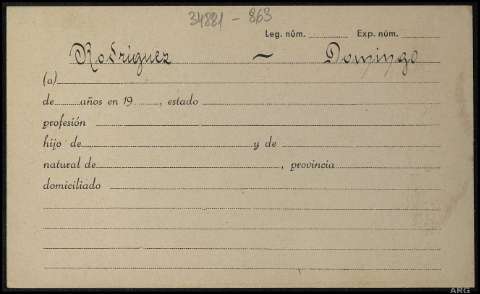 34881 - 863
Leg. núm. Exp. núm.
Rodríguez ~ Domingo
(a)
de años en 19 , estado
profesión
hijo de y de
natural de , provincia
domiciliado
ARG